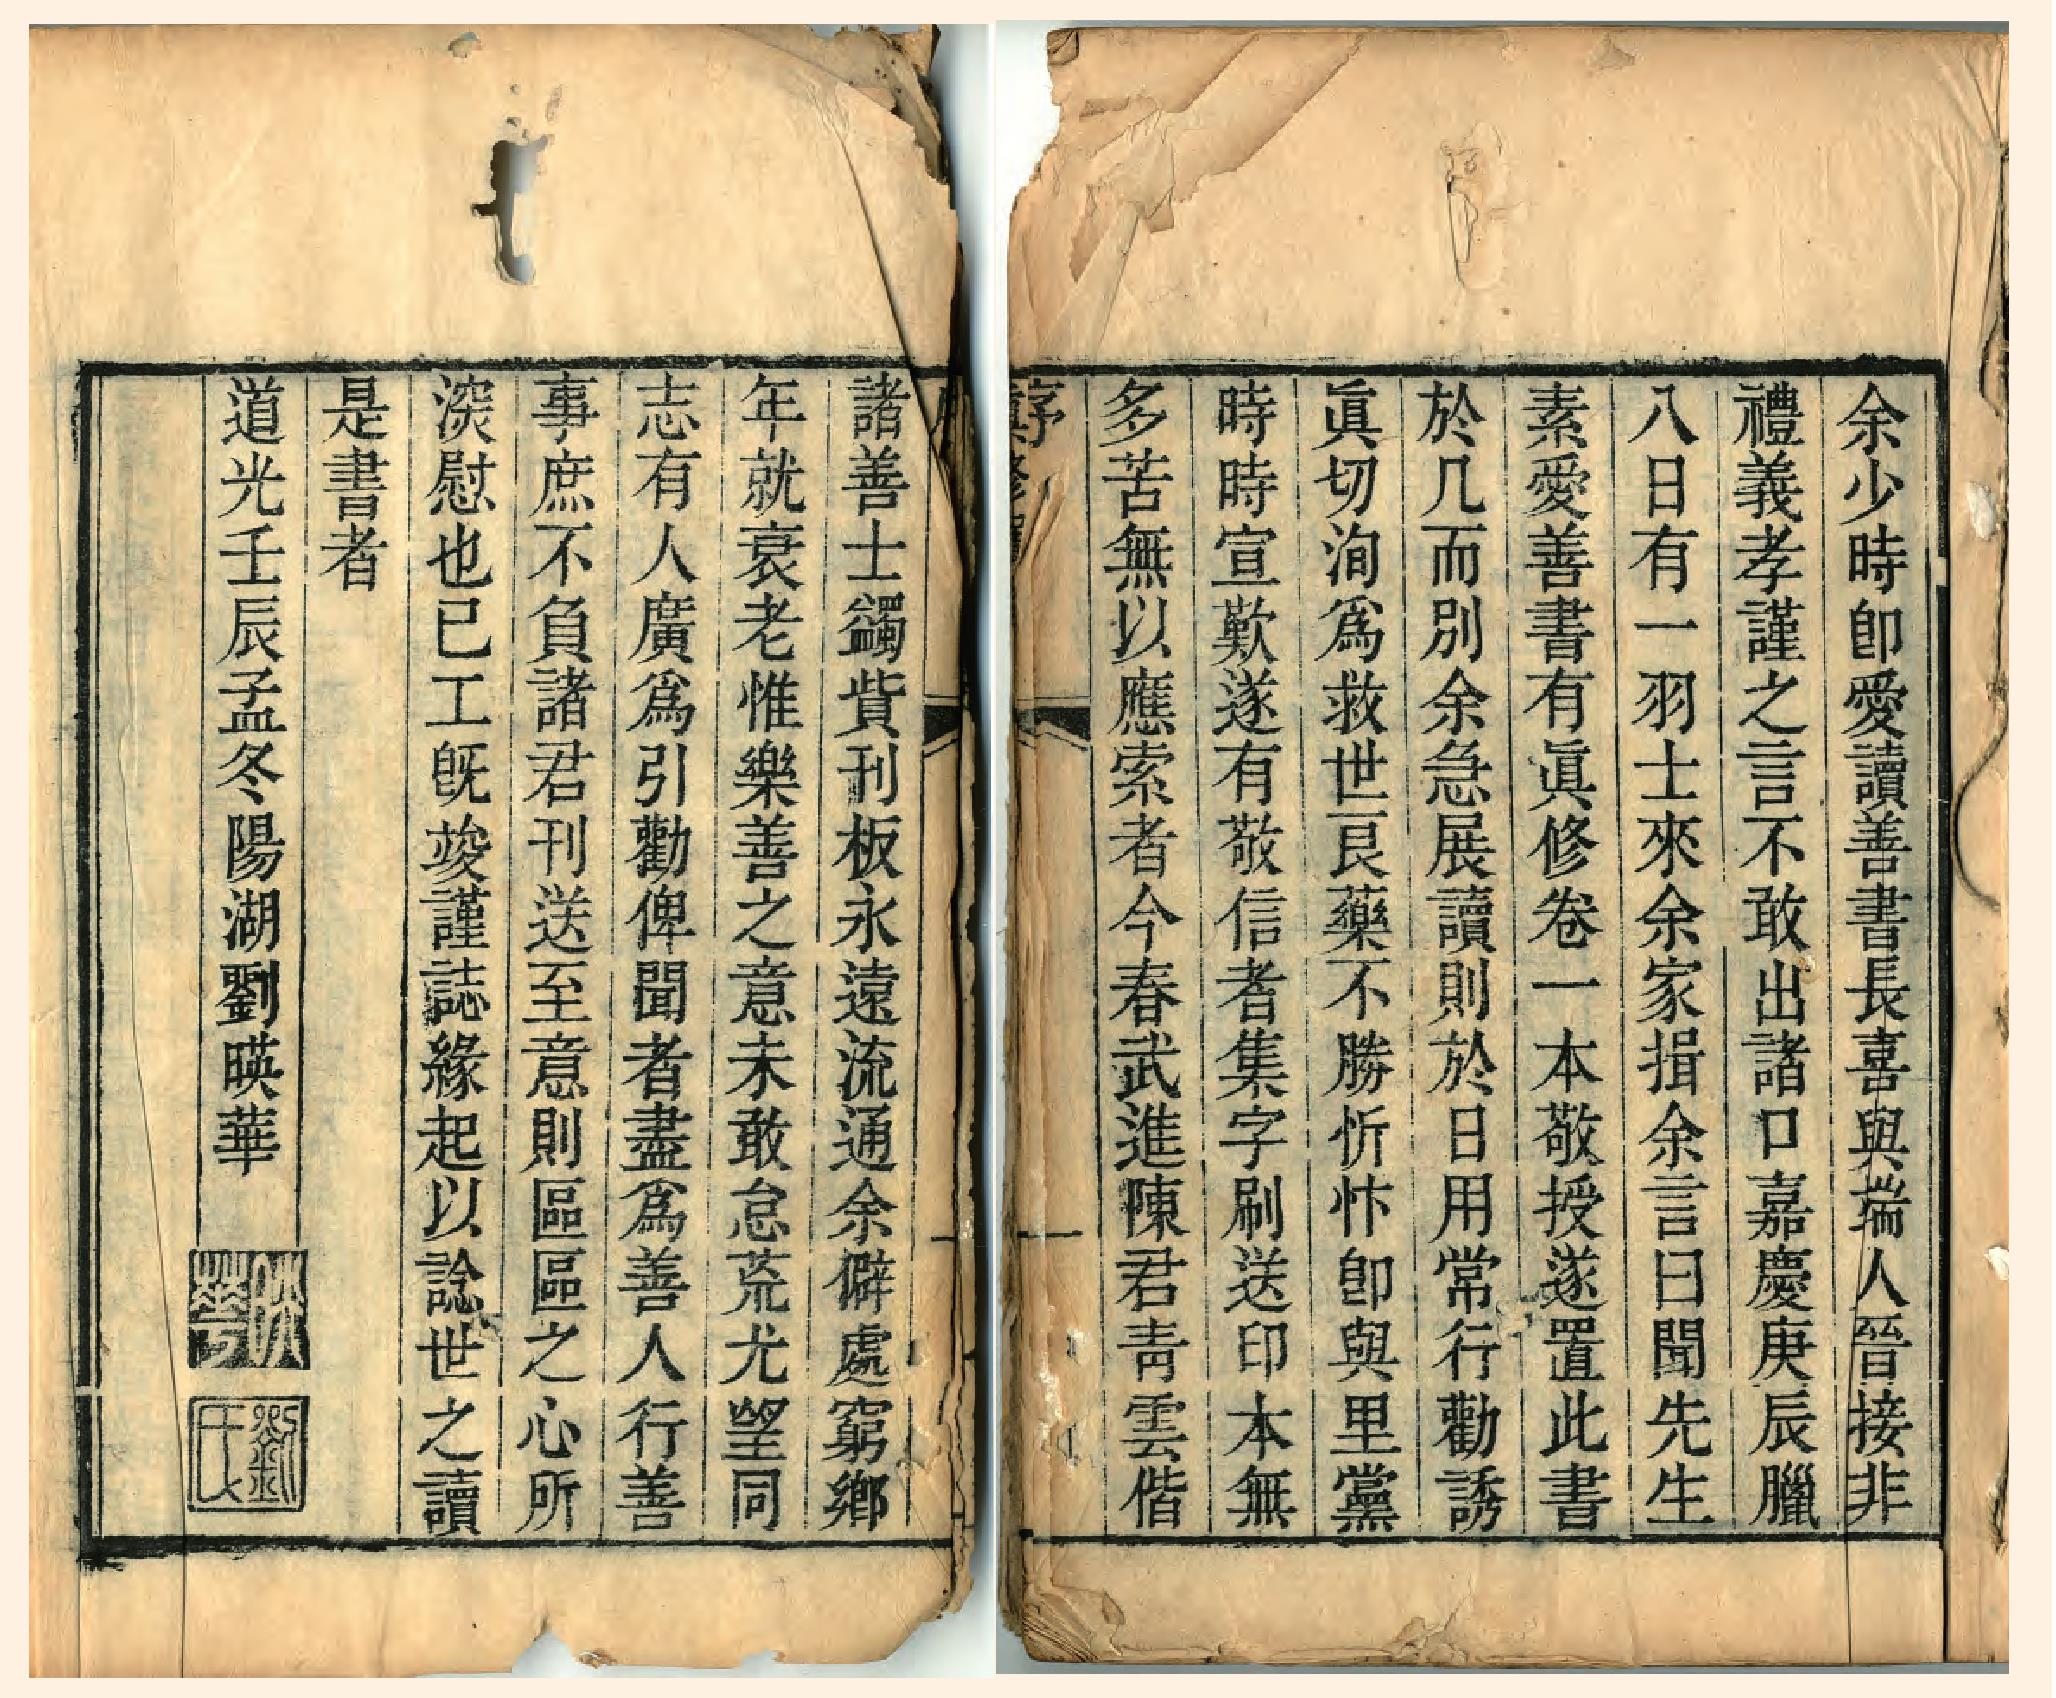 余少時卽愛讀善書長喜與端人晉接非
禮義孝謹之言不敢出諸口嘉慶庚辰臘
八日有一羽士來余家揖余言曰聞先生
素愛善書有眞修卷一本敬授遂置此書
於几而別余急展讀則於日用常行勸誘
眞切洵爲救世艮藥不勝忻忭卽與里黨
時時宣歎遂有敬信者集字刷送印本無
多苦無以應索者今春武進陳君靑雲偕
序
諸善士蠲貲刊板永遠流通余僻處窮鄉
年就衰老惟樂善之意未敢怠荒尤望同
志有人廣爲引勸俾聞者盡爲善人行善
事庶不負諸君刊送至意則區區之心所
深慰也已工旣竣謹誌緣起以諗世之讀
是書者
道光壬辰孟冬陽湖劉暎華
暎華
劉氏